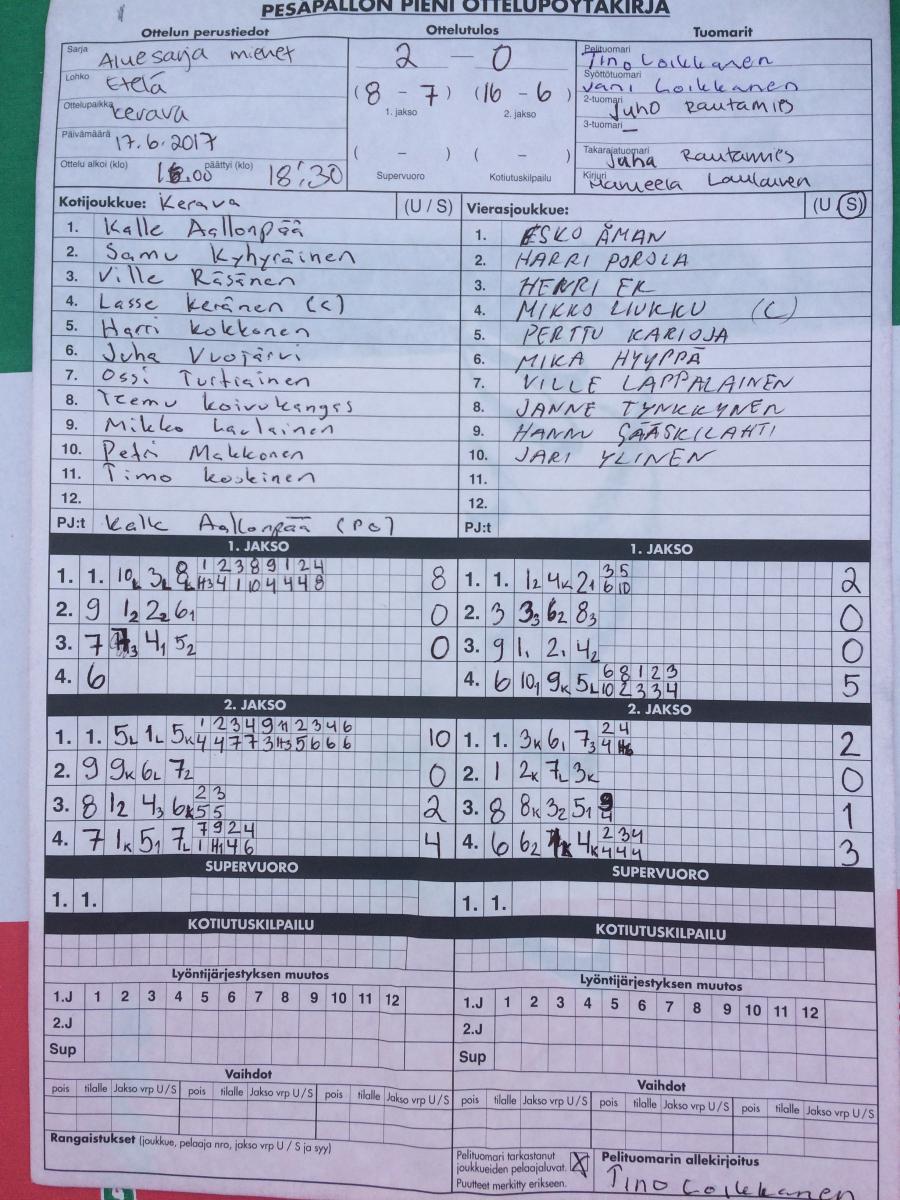 PESÄPALLON PIENI OTTELUPÖYTÄKIRJA
Ottelun perustiedot
Ottelutulos
Tuomarit
Sarja Aluesarja miehet
Lohko Etelä
Ottelupaikka Kerava
Päivämäärä 17.6.2017
Ottelu alkoi (klo) 16.00 päättyi (klo) 18:30
2 — 0
(8 - 7) (16 - 6)
1. jakso 2. jakso
( - ) ( - )
Supervuoro Kotiutuskilpailu
Pelituomari Tino Loikkanen
Syöttötuomari Jani Loikkanen
2-tuomari Juho Rautamies
3-tuomari –
Takarajatuomari Juha Rautamies
Kirjuri Laulainen
Kotijoukkue: Kerava (U / S)
1. Kalle Aallonpää
2. Samu Kyhyräinen
3. Ville Räsänen
4. Lasse Keränen (c)
5. Harri Kokkonen
6. Juha Vuojärvi
7. Ossi Turtiainen
8. Teemu Koivukangas
9. Mikko Laulainen
10. Petri Makkonen
11. Timo Koskinen
12.
PJ:t Kalle Aallonpää (PO)
Vierasjoukkue: (U / S)
1. ESKO ÄMAN
2. HARRI POROLA
3. HENRI EK
4. MIKKO LIUKKU (C)
5. PERTTU KARIOJA
6. MIKA HYYPPÄ
7. VILLE LAPPALAINEN
8. JANNE TYNKKYNEN
9. HANNU SÄÄSKILAHTI
10. JARI YLINEN
11.
12.
PJ:t
1. JAKSO
1 2 3 8 9 1 2 4
1. 1. 10L 3L 8
2. 9 12 22 61 0
3. 7 41 52 0
4. 6
1. JAKSO
3 5
1. 1. 12 4K 21 6 10 2
2. 3 33 62 83 0
3. 9 1. 2. 42 0
6 8 1 2 3
4. 6 101 9K 5L 10 2 3 3 4 5
2. JAKSO
1 2 3 4 9 11 2 3 4 6
1. 1. 5L 1L 5K 4 4 7 7 3 H3 5 6 6 6 10
2. 9 9K 6L 72 0
2 3
3. 8 12 43 6K 5 5 2
7 9 2 4
4. 7 1K 51 7L 1 H1 4 6 4
2. JAKSO
2 4
1. 1. 3K 61 73 4 2
2. 1 2K 7L 3K 0
9
3. 8 8K 32 51 4 1
2 3 4
4. 6 62 4K 4 4 4 3
SUPERVUORO
1. 1.
SUPERVUORO
1. 1.
KOTIUTUSKILPAILU
KOTIUTUSKILPAILU
Lyöntijärjestyksen muutos
1.J 1 2 3 4 5 6 7 8 9 10 11 12
2.J
Sup
Lyöntijärjestyksen muutos
1.J 1 2 3 4 5 6 7 8 9 10 11 12
2.J
Sup
Vaihdot
pois tilalle Jakso vrp U / S pois tilalle Jakso vrp U / S pois tilalle Jakso vrp U / S
Vaihdot
pois tilalle Jakso vrp U / S pois tilalle Jakso vrp U / S pois tilalle Jakso vrp U / S
Rangaistukset (joukkue, pelaaja nro, jakso vrp U / S ja syy)
Pelituomari tarkastanut
joukkueiden pelaajaluvat. X
Puutteet merkitty erikseen.
Pelituomarin allekirjoitus
Tino Loikkanen